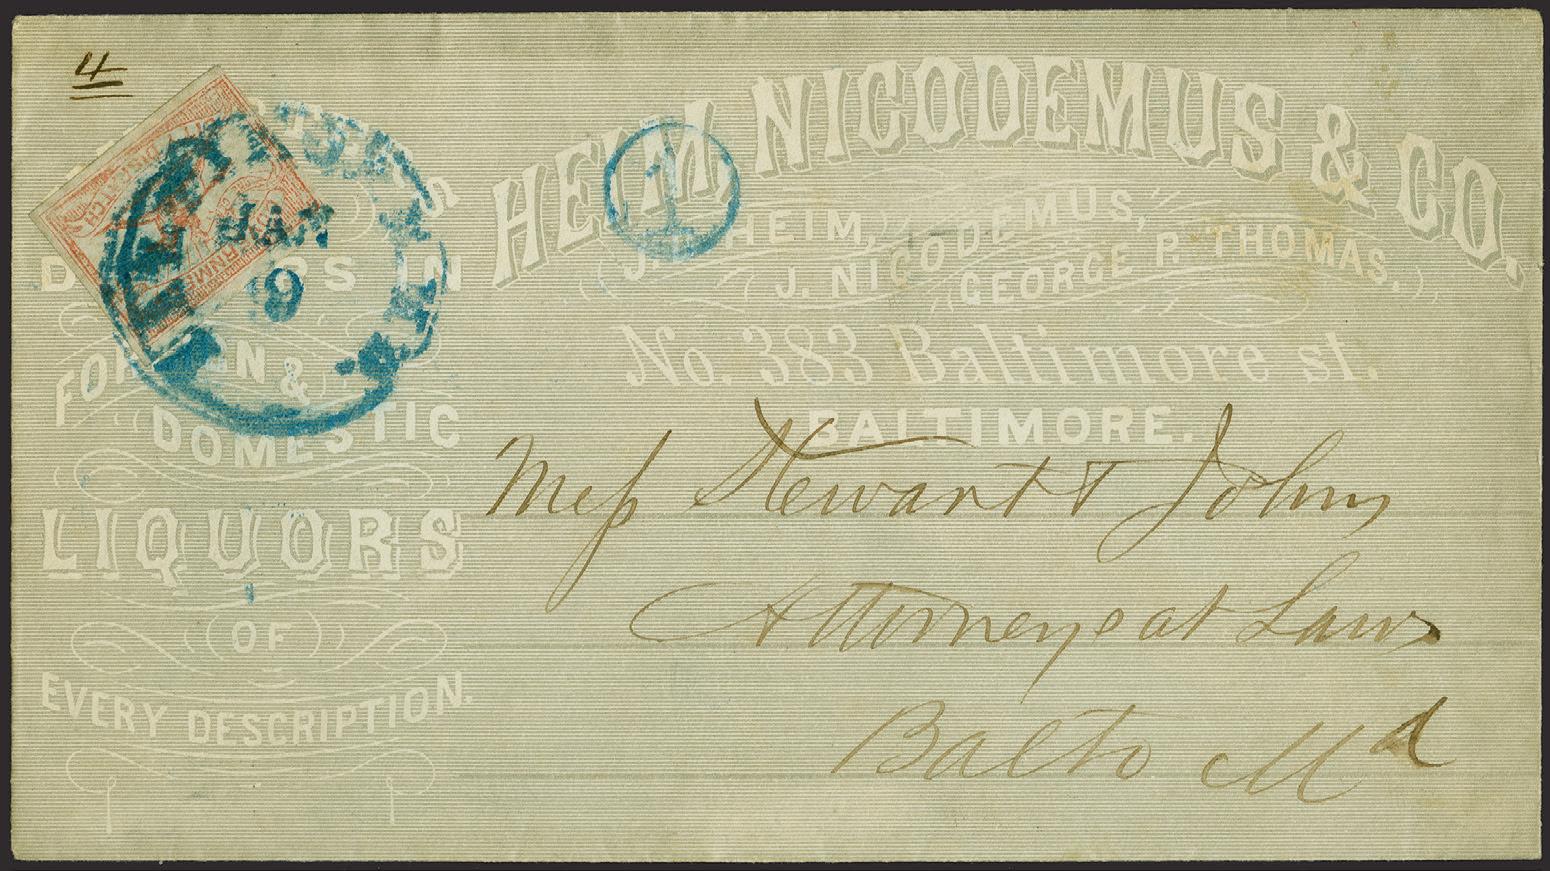 4
JAN
9
1
HEIM, NICODEMUS & CO.
J. HEIM,
J. NICODEMUS,
GEORGE P. THOMAS.
No. 383 Baltimore st.
BALTIMORE.
IN
&
DOMESTIC
LIQUORS
OF
EVERY DESCRIPTION.
Mess Stewart & Johns
Attorneys at Law
Balto Md